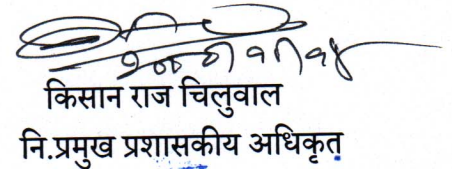 किसान राज चिलुवाल
नि.प्रमुख प्रशासकीय अधिकृत